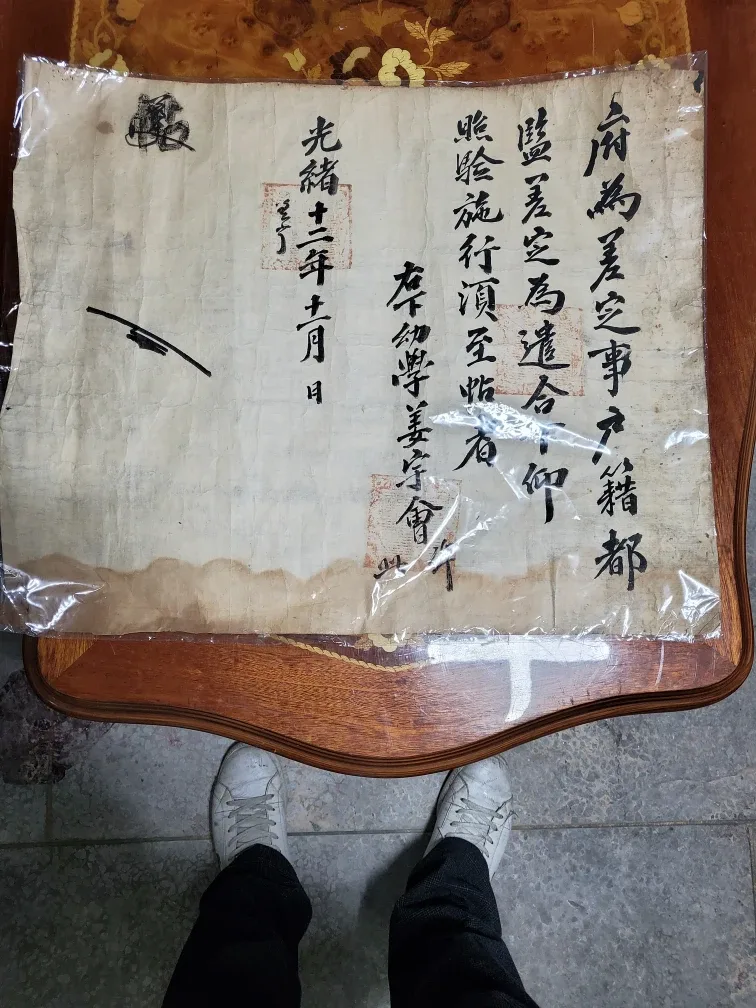 府為差定事戶籍都
監差定為遣合下仰
照驗施行須至帖者
右下幼學姜宗會 准此
光緒十二年十一月 日